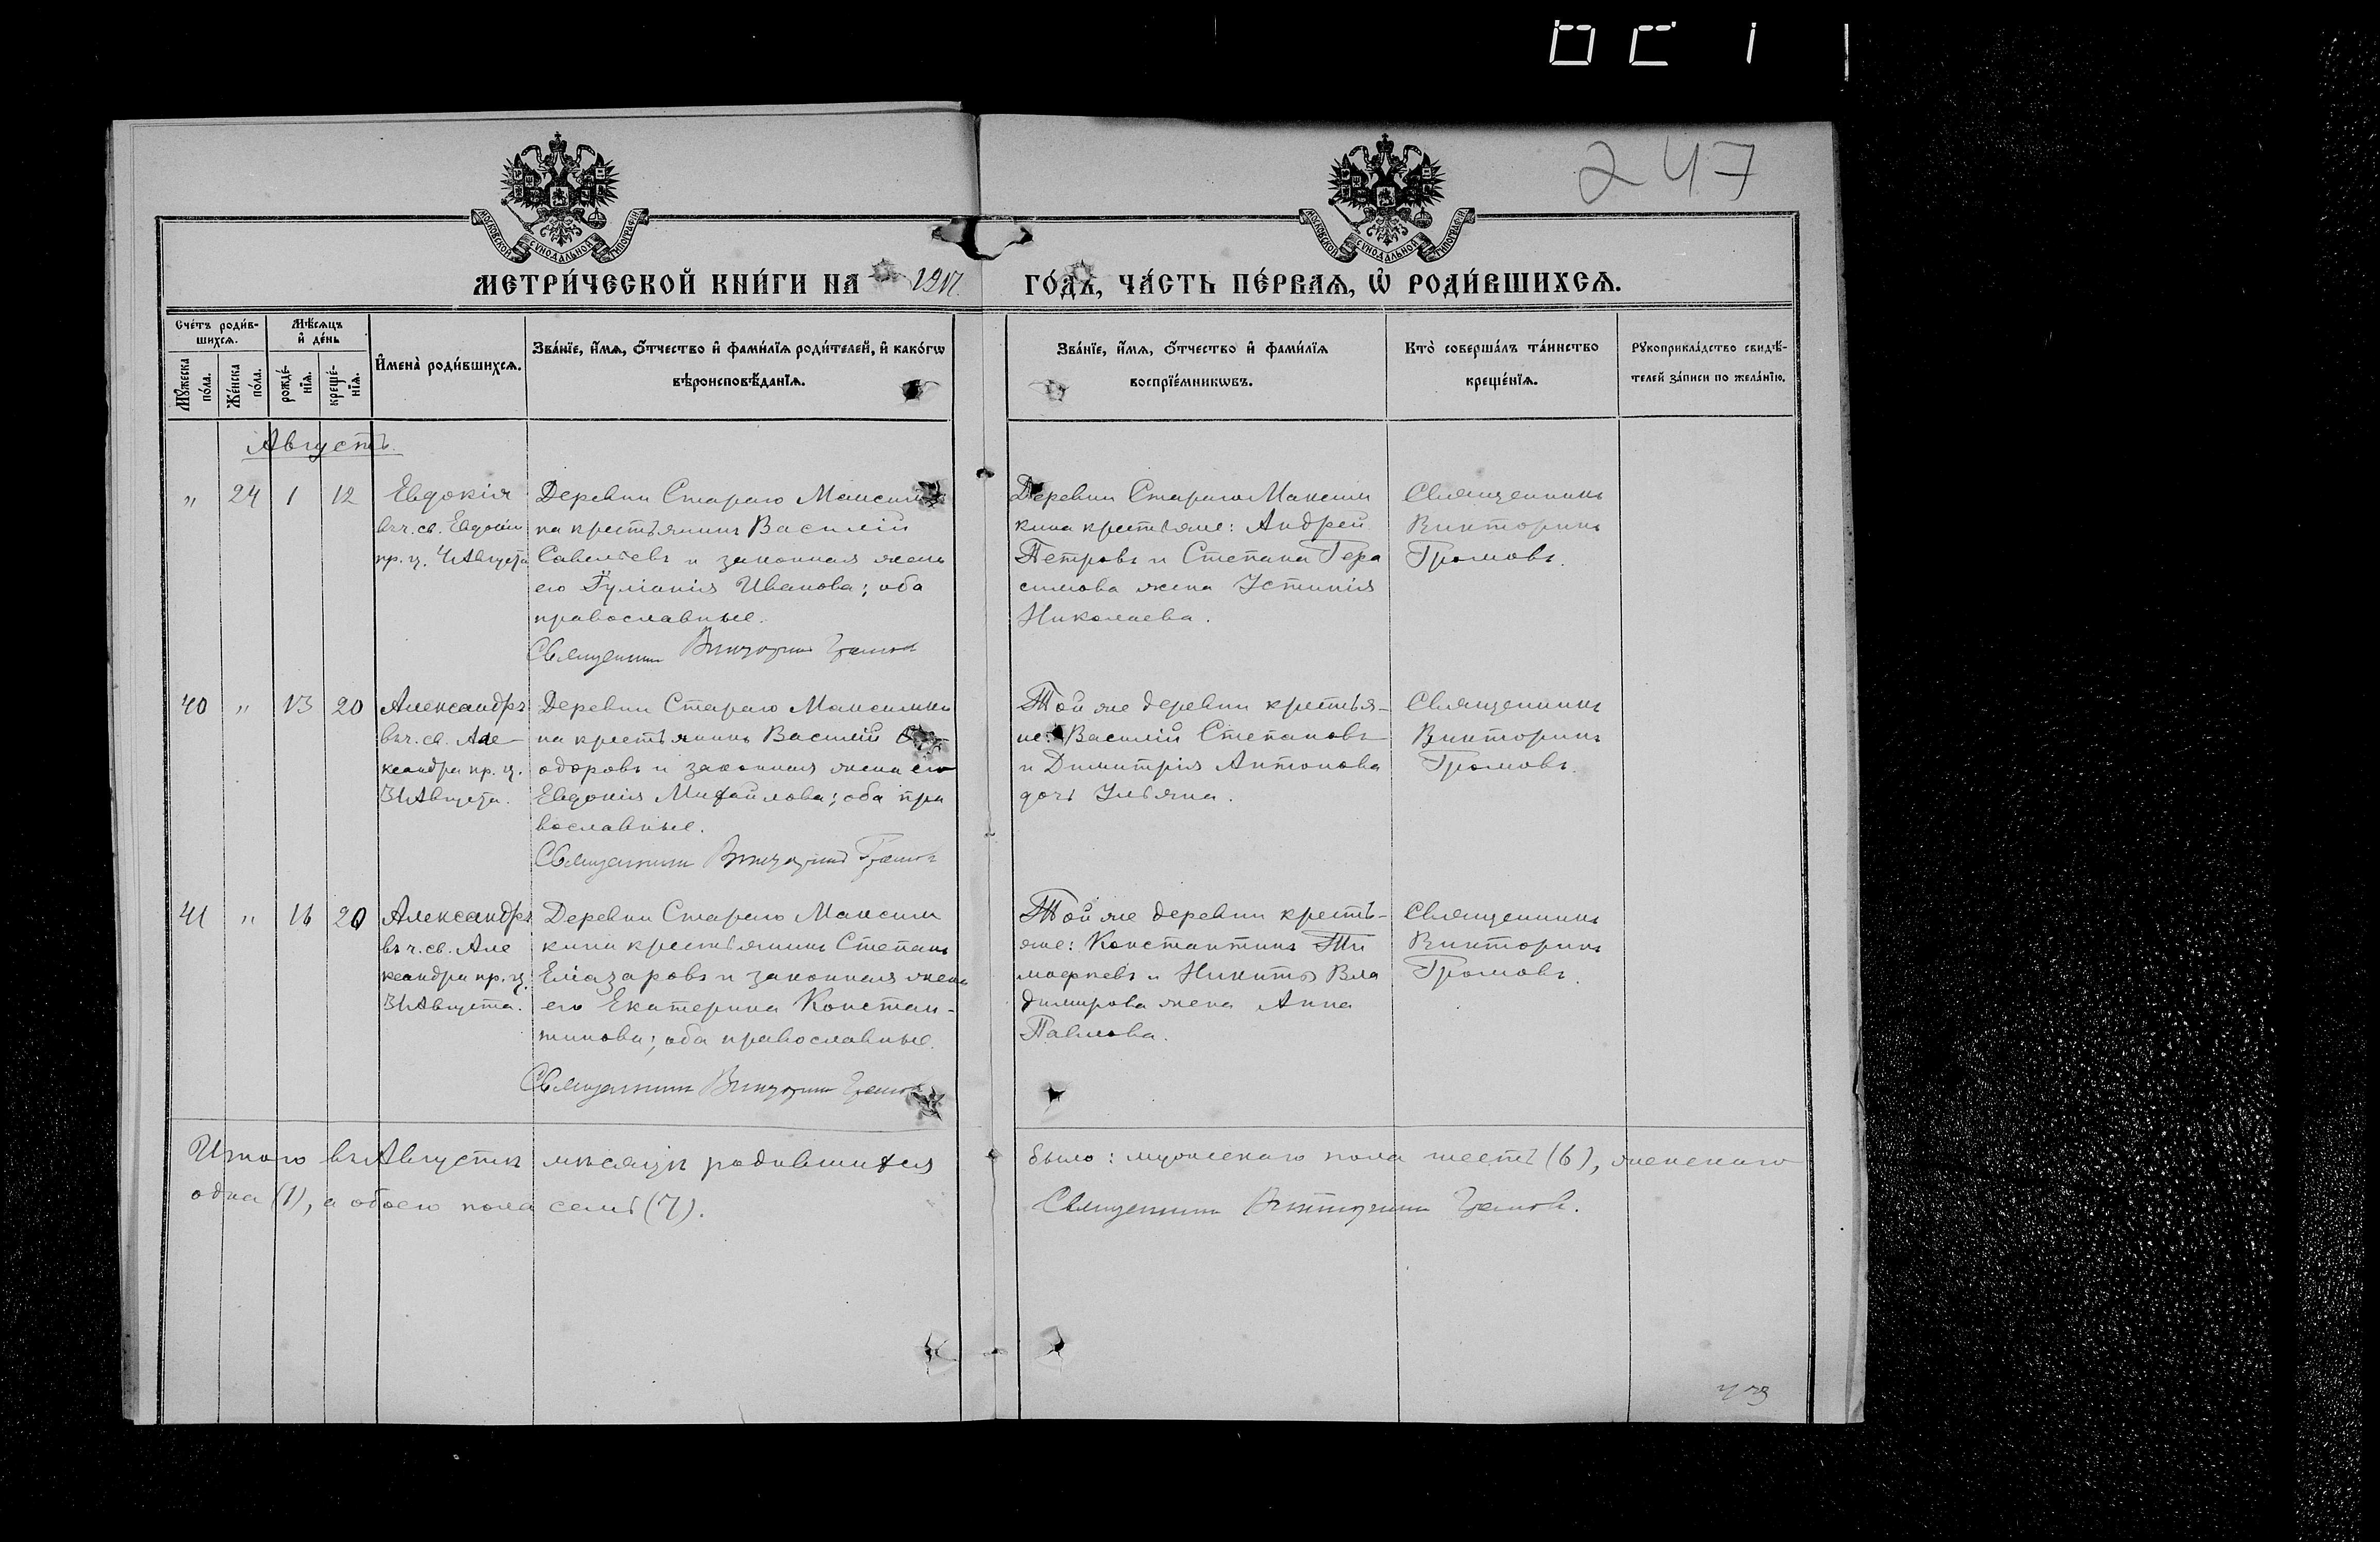 247
МОСКОВСКОЙ СѴНОДАЛЬНОЙ ТИПОГРАФІИ
МОСКОВСКОЙ СѴНОДАЛЬНОЙ ТИПОГРАФІИ
МЕТРИ́ЧЕСКОЙ КНИ́ГИ НА
ГО́ДЪ, ЧА́СТЬ ПЕ́РВАѦ, Ѡ҆ РОДИ́ВШИХСѦ.
Сче́тъ роди́в-
шихсѧ.
Мѣ́сѧцъ
и҆ де́нь
Мꙋ́жеска
по́ла.
Же́нска
по́ла.
рожде́-
нїѧ.
креще́-
нїѧ.
И҆мена̀ роди́вшихсѧ.
Зва́нїе, и҆́мѧ, ѻ҆́тчество и҆ фами́лїѧ роди́телей, и҆ како́гѡ
вѣроисповѣ́данїѧ.
Зва́нїе, и҆́мѧ, ѻ҆́тчество и҆ фами́лїѧ
воспрїе́мникѡвъ.
Кто̀ соверша́лъ та́инство
креще́нїѧ.
Рꙋкоприкла́дство свидѣ́-
телей за́писи по жела́нїю.
Августъ.
" 24 1 12
Евдокія
въ ч. св. Евдокіи
пр. ц. 4 Августа
Деревни Стараго Максимки
на крестьянинъ Василій
Савельевъ и законная жена
его Іуліанія Иванова; оба
православные.
Священникъ Викторинъ Громовъ
Деревни Стараго Максим
кина крестьяне: Андрей
Петровъ и Степана Гера
симова жена Устинія
Николаева.
Священникъ
Викторинъ
Громовъ.
40 " 13 20
Александръ
въ ч. св. Але-
ксандра пр. ц.
31 Августа.
Деревни Стараго Максимки
на крестьянинъ Василій Ѳе
одоровъ и законная жена его
Евдокія Михайлова; оба пра
вославные.
Священникъ Викторинъ Громовъ
Той же деревни крестья-
не: Василій Степановъ
и Димитрія Антонова
дочь Ульяна.
Священникъ
Викторинъ
Громовъ.
41 " 16 20
Александръ
въ ч. св. Але
ксандра пр. ц.
31 Августа.
Деревни Стараго Максим
кина крестьянинъ Степанъ
Еліазаровъ и законная жена
его Екатерина Констан-
тинова; оба православные.
Священникъ Викторинъ Громовъ
Той же деревни кресть-
яне: Константинъ Ти
моѳеевъ и Никиты Вла
димирова жена Анна
Павлова.
Священникъ
Викторинъ
Громовъ.
Итого въ Августѣ мѣсяцѣ родившихся было: мужескаго пола шесть (6), женскаго
одна (1), а обоего пола семь (7).
Священникъ Викторинъ Громовъ.